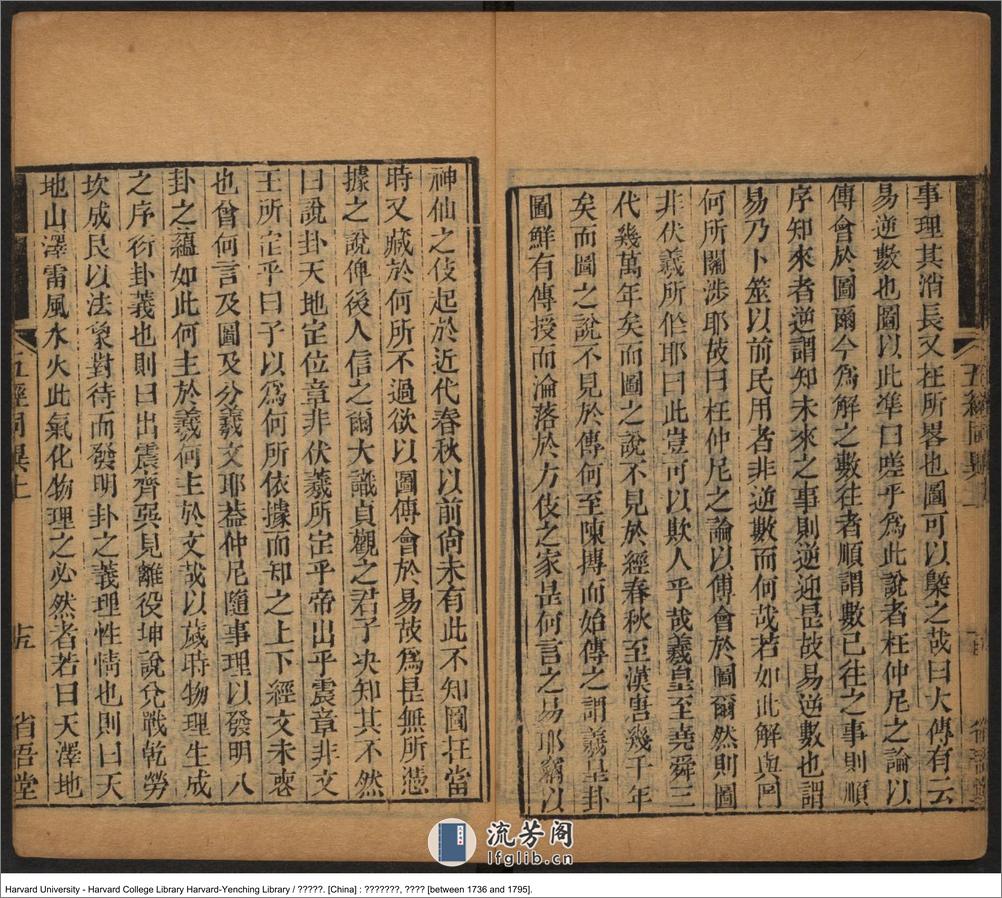 事理其消長又在所畧也圖可以槩之哉曰大傳有云
易逆數也圖以此準曰嗟乎爲此說者枉仲尼之論以
傳會於圖爾今爲解之數往者順謂數已往之事則順
序知來者逆謂知未來之事則逆迎是故易逆數也謂
易乃卜筮以前民用者非逆數而何哉若如此解與圖
何所關涉耶故曰枉仲尼之論以傅會於圖爾然則圖
非伏羲所作耶曰此豈可以欺人乎哉羲皇至堯舜三
代幾萬年矣而圖之說不見於經春秋至漢唐幾千年
矣而圖之說不見於傳何至陳摶而始傳之謂羲皇卦
圖鮮有傳授而淪落於方伎之家是何言之易耶竊以
五經同異上
省吾堂
神仙之伎起於近代春秋以前尙未有此不知圖在當
時又藏於何所不過欲以圖傅會於易故爲是無所憑
據之說俾後人信之爾大識貞觀之君子决知其不然
曰說卦天地定位章非伏羲所定乎帝出乎震章非文
王所定乎曰子以爲何所依據而知之上下經文未喪
也曾何言及圖及分羲文耶葢仲尼隨事理以發明八
卦之蘊如此何主於羲何主於文哉以歲時物理生成
之序衍卦義也則曰出震齊巽見離役坤說兌戰乾勞
坎成艮以法象對待而發明卦之義理性情也則曰天
地山澤雷風水火此氣化物理之必然者若曰天澤地
五經同異上
十五
省吾堂
流芳阁
lfglib.cn
Harvard University - Harvard College Library Harvard-Yenching Library / ?????. [China] : ???????, ???? [between 1736 and 1795].